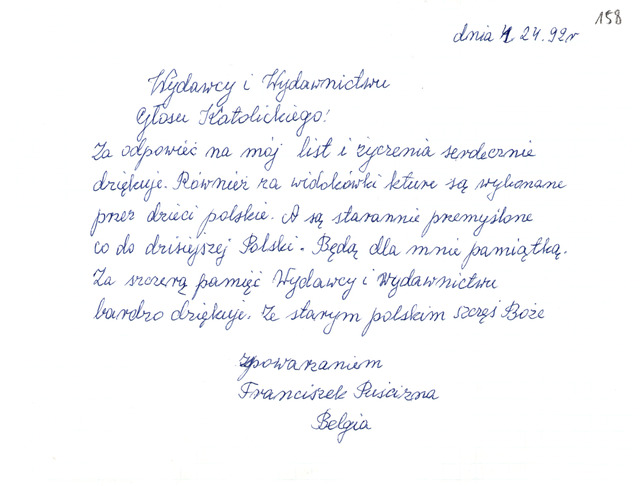 158
dnia 4 24.92r
Wydawcy i Wydawnictwu
Głosu Katolickiego!
Za odpowieć na mój list i życzenia serdecznie
dziękuje. Również za widokówki kture są wykonane
przez dzieci polskie. A są starannie przemyślone
co do dzisiejszej Polski. Będą dla mnie pamiątką.
Za szczerą pamięć Wydawcy i Wydawnictwu
bardzo dziękuje. Ze starym polskim szczęś Boże
zpowarzaniem
Franciszek Puścizna
Belgia